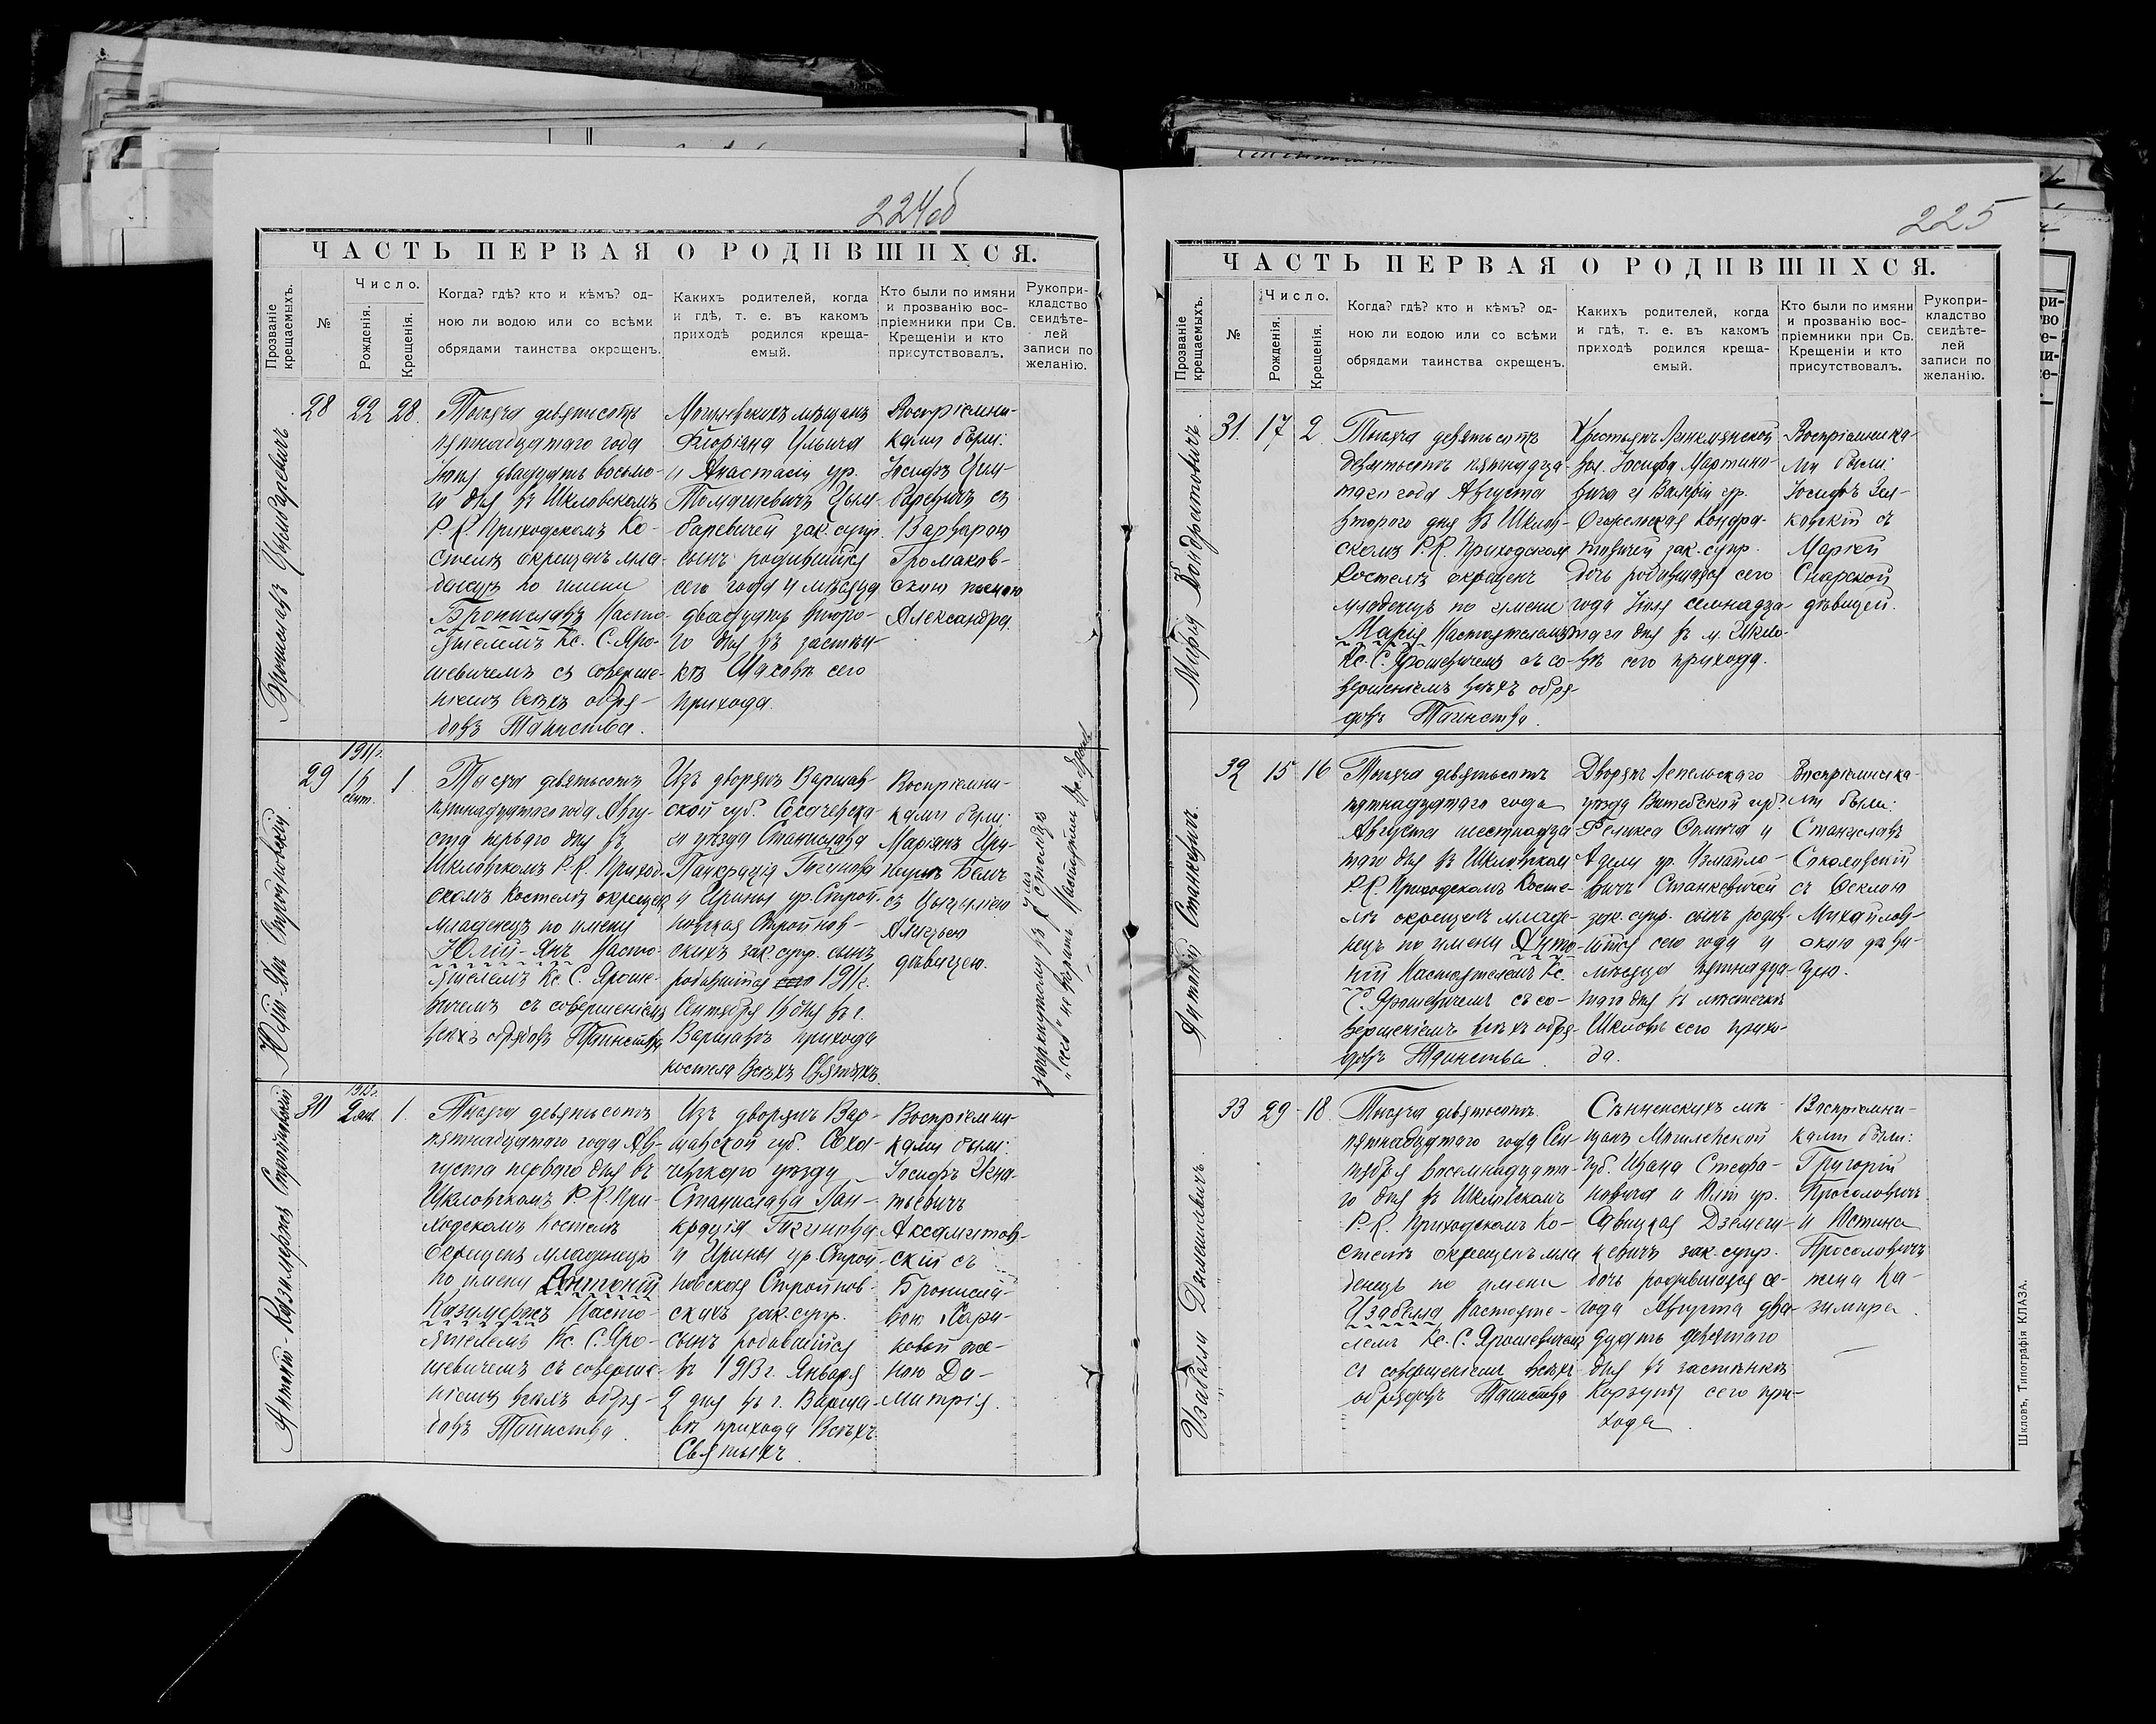 224об
ЧАСТЬ ПЕРВАЯ О РОДИВШИХСЯ.
Прозваніе крещаемыхъ.
№
Число.
Рожденія.
Крещенія.
Когда? гдѣ? кто и кѣмъ? од-
ною ли водою или со всѣми
обрядами таинства окрощенъ.
Какихъ родителей, когда
и гдѣ, т. е. въ какомъ
приходѣ родился креща-
емый.
Кто были по имяни
и прозванію вос-
пріемники при Св.
Крещеніи и кто
присутствовалъ.
Рукопри-
кладство
свидѣте-
лей
записи по
желанію.
Брониславъ
28
22
28.
Тысяча девятьсотъ
пятнадцатаго года
двадцать восьмо-
го дня въ Шкловскомъ
Р. К. Приходскомъ Ко-
стелѣ окрещенъ мла-
денецъ по имени
Брониславъ Насто-
ятелемъ Кс. С. Яро-
шевичемъ съ соверше-
ніемъ всѣхъ обря-
довъ Таинства.
Могилевскихъ мѣщанъ
Флоріана
и Анастасіи ур.
Томашевичъ
баревичей зак. супр.
сынъ родившійся
сего года и мѣсяца
двадцать второ-
го дня въ застѣн-
кѣ сего
прихода.
Воспріемни-
ками были:
Іосифъ
баревичъ съ
Варварою
Громаков-
скою женою
Александра.
Юлій-Янъ Стройновскій
29
1911г.
15
сент.
1.
Тысяча девятьсотъ
пятнадцатаго года Авгу-
ста перваго дня въ
Шкловскомъ Р. К. Приход-
скомъ Костелѣ окрещенъ
младенецъ по имени
Юлій-Янъ Насто-
ятелемъ Кс. С. Яроше-
вичемъ съ совершеніемъ
всѣхъ обрядовъ Таинства
Изъ дворянъ Варшав-
ской губ. Сохачевска-
го уѣзда Станислава
Панкрація
и Ирины ур. Строй-
новская Стройнов-
скихъ зак. супр. сынъ
родившійся сего 1911г.
Сентября 15 дня въ г.
Варшавѣ прихода
костела Всѣхъ Святыхъ.
Воспріемни-
ками были:
Маріанъ
съ
дѣвицею.
Антоній-Казимержъ Стройновскій
30
1913г.
2 янв.
1.
Тысяча девятьсотъ
пятнадцатаго года Ав-
густа перваго дня въ
Шкловскомъ Р. К. При-
ходскомъ Костелѣ
окрещенъ младенецъ
по имени Антоній
Казимержъ Насто-
ятелемъ Кс. С. Яро-
шевичемъ съ соверше-
ніемъ всѣхъ обря-
довъ Таинства.
Изъ дворянъ Вар-
шавской губ. Соха-
чевскаго уѣзда
Станислава Пан-
крація
и Ирины ур. Строй-
новская Стройнов-
скихъ зак. супр.
сынъ родившійся
въ 1913 г. Января
2 дня въ г. Варша-
вѣ прихода Всѣхъ
Святыхъ.
Воспріемни-
ками были:
Іосифъ Игна-
тьевичъ
Аксамитов-
скій съ
Бронисла-
вою
же-
ною Ди-
митрія.
225
ЧАСТЬ ПЕРВАЯ О РОДИВШИХСЯ.
Прозваніе крещаемыхъ.
№
Число.
Рожденія.
Крещенія.
Когда? гдѣ? кто и кѣмъ? од-
ною ли водою или со всѣми
обрядами таинства окрещенъ.
Какихъ родителей, когда
и гдѣ, т. е. въ какомъ
приходѣ родился креща-
емый.
Кто были по имяни
и прозванію вос-
пріемники при Св.
Крещеніи и кто
присутствовалъ.
Рукопри-
кладство
свидѣте-
лей
записи по
желанію.
Марія Кондратовичъ.
31.
17
2.
Тысяча девятьсотъ
девятьсотъ пятнадца-
таго года Августа
второго дня въ Шклов-
скомъ Р. К. Приходскомъ
Костелѣ окрещенъ
младенецъ по имени
Марія Настоятелемъ
Кс. С. Ярошевичемъ съ со-
вершеніемъ всѣхъ обря-
довъ Таинства.
Крестьянъ
вол. Іосифа Мартино-
вича и Валеріи ур.
Кондра-
товичей зак. супр.
дочь родившаяся сего
года Іюля семнадца-
таго дня въ м. Шкло-
вѣ сего прихода.
Воспріемника-
ми были:
Іосифъ
съ
Маріей
дѣвицей.
Антоній Станкевичъ.
32
15
16
Тысяча девятьсотъ
пятнадцатаго года
Августа шестнадца-
таго дня въ Шкловскомъ
Р. К. Приходскомъ Косте-
лѣ окрещенъ младе-
нецъ по имени Анто-
ній Настоятелемъ Кс.
С. Ярошевичемъ съ со-
вершеніемъ всѣхъ обря-
довъ Таинства.
Дворянъ Лепельскаго
уѣзда Витебской губ.
Феликса и
Адели ур. Измайло-
вичъ Станкевичей
зак. супр. сынъ родив-
шійся сего года и
мѣсяца пятнадца-
таго дня въ мѣстечкѣ
Шкловѣ сего прихо-
да.
Воспріемника-
ми были:
Станиславъ
Соколовскій
съ Феклою
Михайлов-
скою дѣви-
цею.
Изабелла
33
29
18.
Тысяча девятьсотъ
пятнадцатаго года Сен-
тября восемнадцата-
го дня въ Шкловскомъ
Р. К. Приходскомъ Ко-
стелѣ окрещенъ мла-
денецъ по имени
Изабелла Настояте-
лемъ Кс. С. Ярошевичемъ
съ совершеніемъ всѣхъ
обрядовъ Таинства
Сѣнненскихъ мѣ-
щанъ Могилевской
губ. Ивана Стефа-
новича и ур.
Савицкая
зак. супр.
дочь родившаяся се-
года Августа два-
дцать девятаго
дня въ застѣнкѣ
Корзуны сего при-
хода.
Воспріемни-
ками были:
Григорій
Просоловичъ
и Юстина
Просоловичъ
жена Ка-
зимира.
Шкловъ, Типографія КЛАЗА.